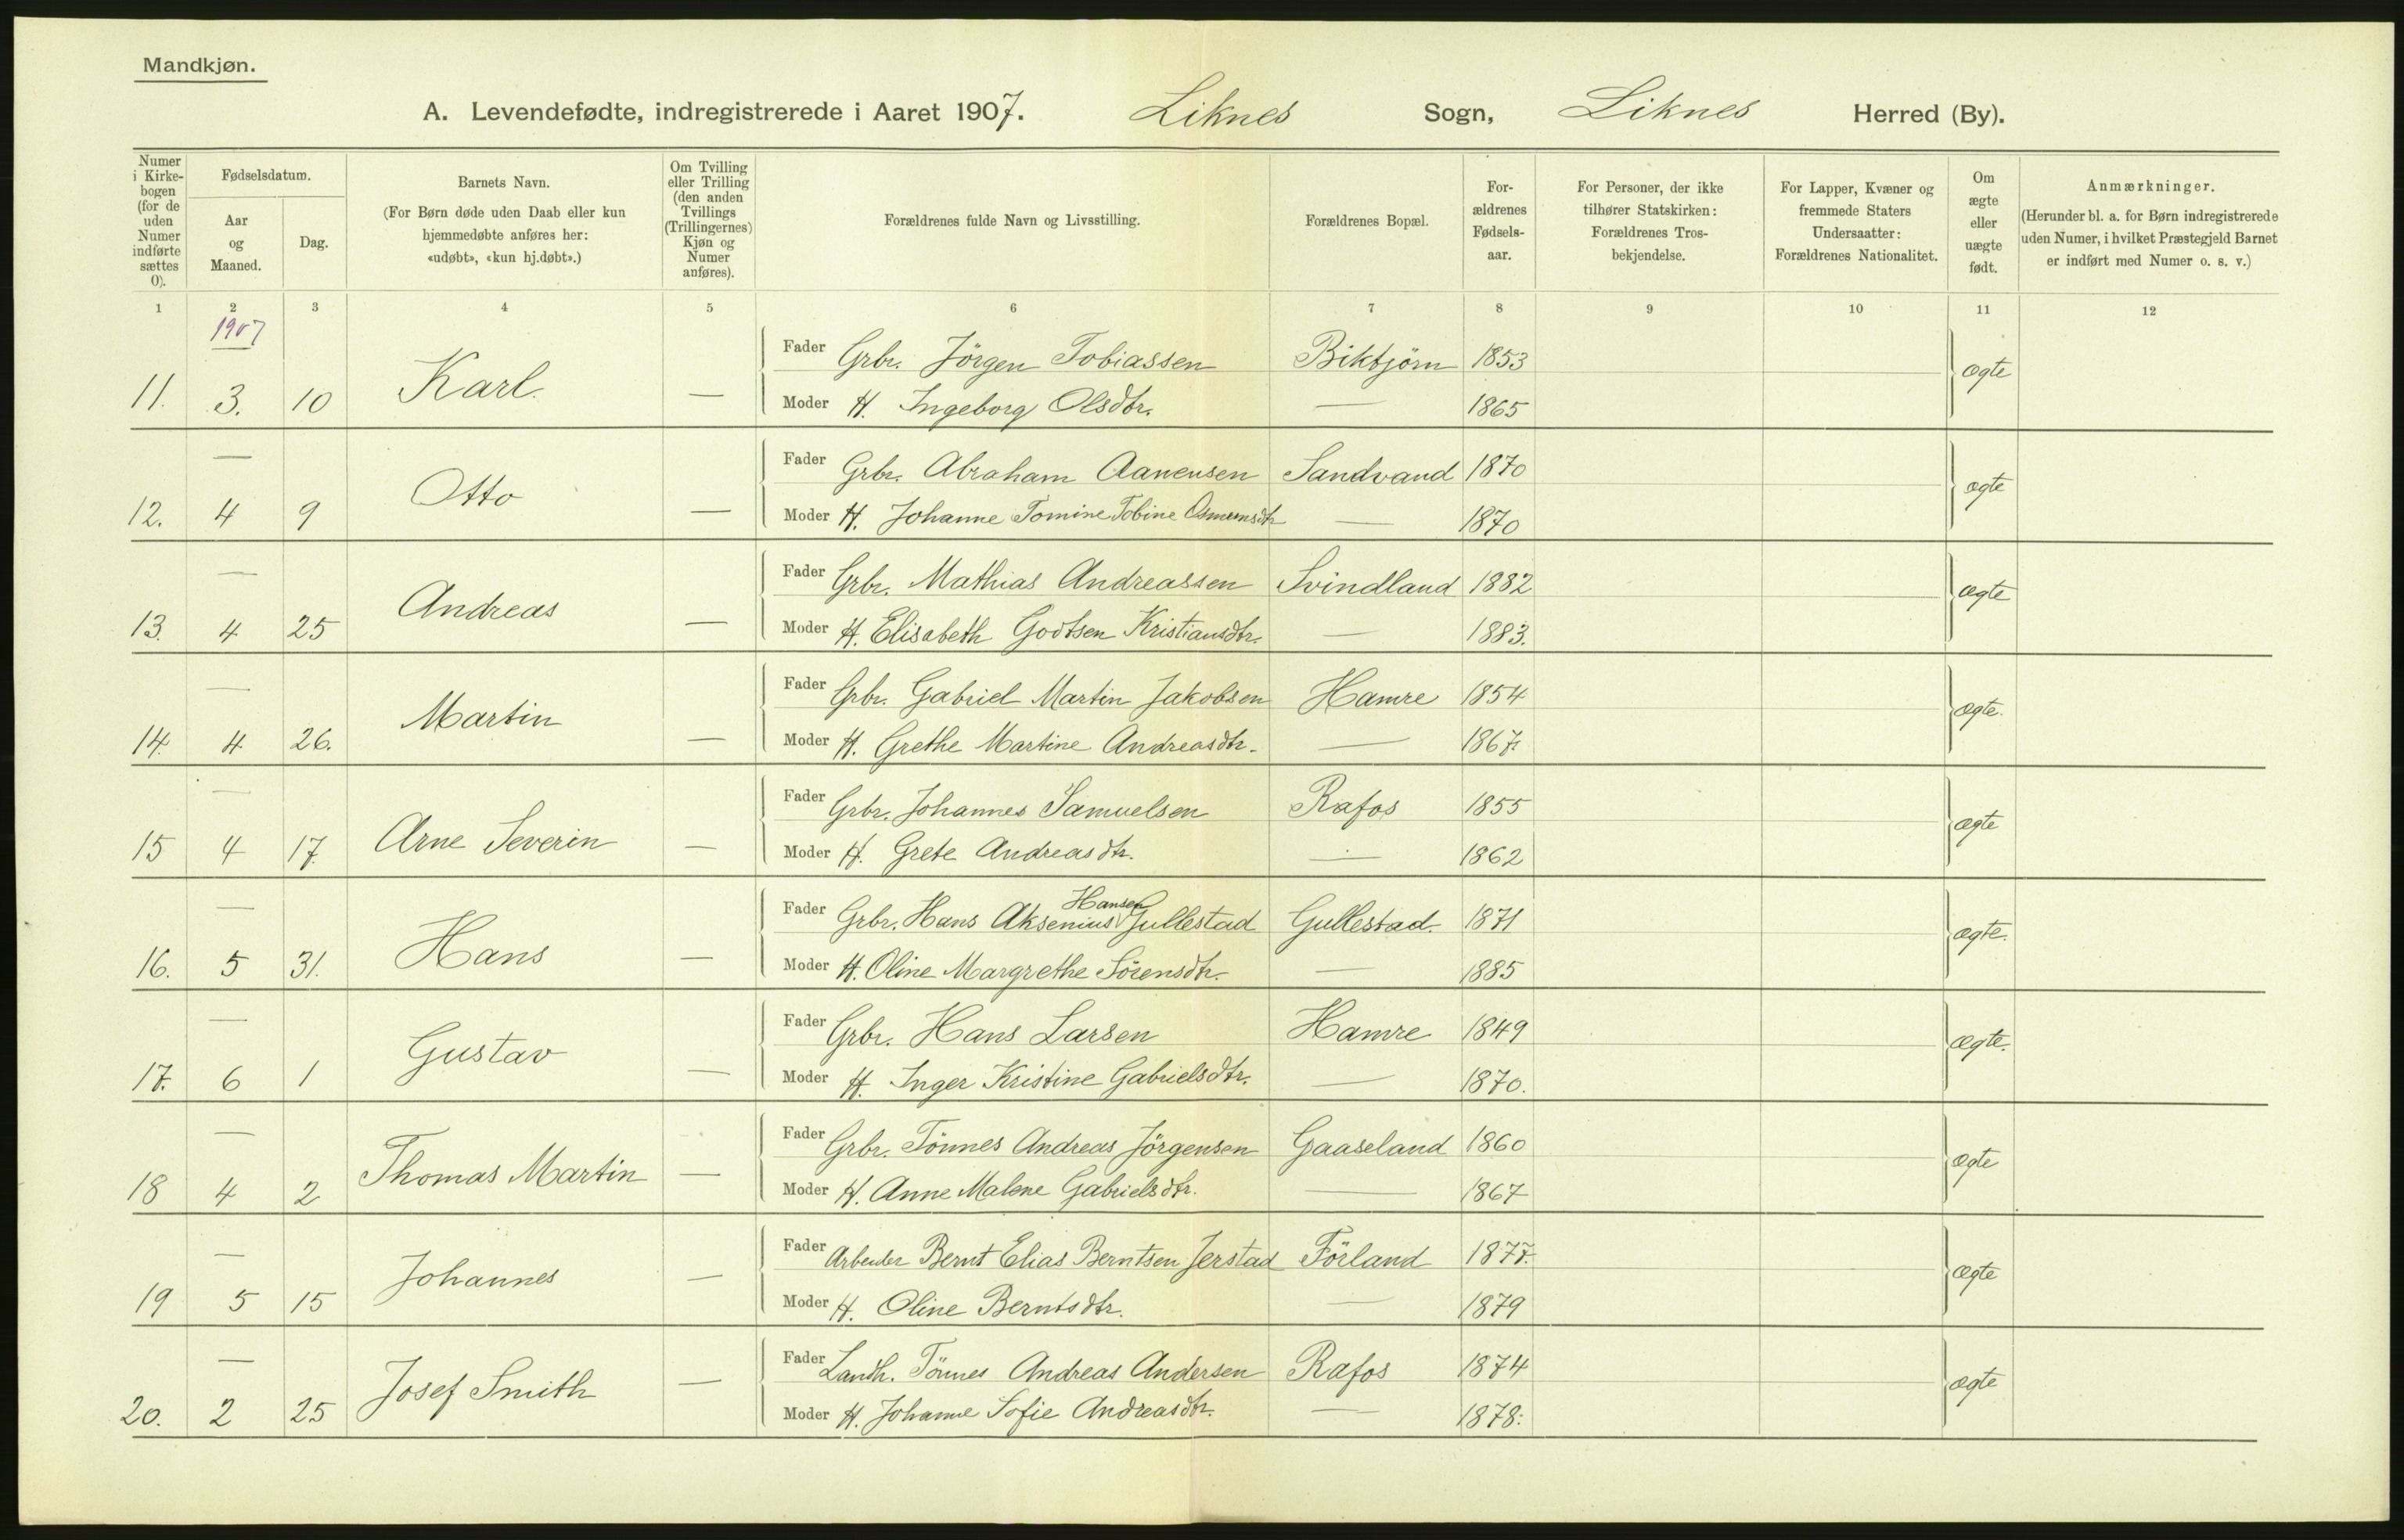 Mandkjøn.
A. Levendefødte, indregistrerede i Aaret 1907. Liknes Sogn, Liknes Herred (By).
Numer i Kirkebogen (for de uden Numer indførte sættes 0).
Fødselsdatum.
Aar og Maaned.
Dag.
Barnets Navn.
(For Børn døde uden Daab eller kun hjemmedøbte anføres her: «udøbt», «kun hj.døbt».)
Om Tvilling eller Trilling (den anden Tvillings (Trillingernes) Kjøn og Numer anføres).
Forældrenes fulde Navn og Livsstilling.
Forældrenes Bopæl.
For-ældrenes Fødsels-aar.
For Personer, der ikke tilhører Statskirken: Forældrenes Tros-bekjendelse.
For Lapper, Kvæner og fremmede Staters Undersaatter: Forældrenes Nationalitet.
Om ægte eller uægte født.
Anmærkninger.
(Herunder bl. a. for Børn indregistrerede uden Numer, i hvilket Præstegjeld Barnet er indført med Numer o. s. v.)
1 2 3 4 5 6 7 8 9 10 11 12
1907
Fader Grbr. Jörgen Tobiassen Biktjörn 1853
11. 3. 10 Karl. — ægte
Moder H. Ingeborg Olsdtr. — 1865
—
Fader Grbr. Abraham Aanensen Sandvand 1870
12. 4 9 Otto — ægte
Moder H. Johanne Tomine Tobine Osmunsdtr — 1870
—
Fader Grbr. Mathias Andreassen Svindland 1882
13. 4 25 Andreas — ægte
Moder H. Elisabeth Godtsen Kristiansdtr. — 1883.
—
Fader Grbr. Gabriel Martin Jakobsen Hamre 1854
14. 4 26. Martin — ægte.
Moder H. Grethe Martine Andreasdtr. — 1867.
—
Fader Grbr. Johannes Samuelsen Rafos 1855
15 4 17. Arne Severin — ægte
Moder H. Grete Andreasdtr. — 1862
—
Fader Grbr. Hans Aksenius Hansen Gullestad Gullestad. 1871
16. 5 31. Hans — ægte.
Moder H. Oline Margrethe Sörensdtr. — 1885
—
Fader Grbr. Hans Larsen Hamre 1849
17. 6 1 Gustav — ægte.
Moder H. Inger Kristine Gabrielsdtr. — 1870.
—
Fader Grbr. Tönnes Andreas Jörgensen Gaaseland 1860
18 4 2 Thomas Martin — ægte
Moder H. Anne Malene Gabrielsdtr. — 1867
—
Fader Arbeider Bernt Elias Berntsen Jerstad Förland 1877.
19 5 15 Johannes — ægte
Moder H. Oline Berntsdtr. — 1879
—
Fader Landh. Tönnes Andreas Andersen Rafos 1874
20. 2 25 Josef Smith — ægte
Moder H. Johanne Sofie Andreasdtr. — 1878.